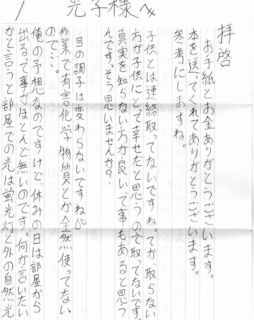 1
光子様へ
拝啓
お手紙とお金ありがとうございます。
本を送ってくれてありがとうございます。
参考にしますね。
子供とは連絡取ってないですね。てか取らない
方が子供にとって幸せだと思うので取ってないです。
真実を知らない方が良いって事もあると思う
んです。そう思いませんか?
目の調子は変わらないですね。
作業で有害化学物質とか全然使ってない
ので…。
俺の予想なのですけど、休みの日は部屋から
出るって事がほとんど無いのです。何が言いたい
かと言うと部屋での光は蛍光灯と外の自然光